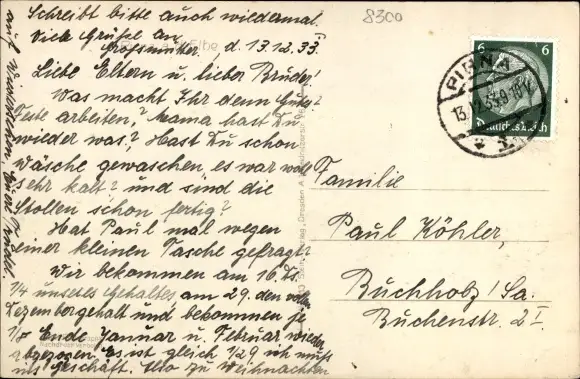 Schreibt bitte auch wiedermal.
Viele Grüße an
Großmutter. d. 13.12.33.
Liebe Eltern u. lieber Bruder!
Was macht Ihr denn Gutes?
Feste arbeiten? Mama hast Du
wieder was? Hast Du schon
Wäsche gewaschen, es war wohl
sehr kalt? und sind die
Stollen schon fertig?
Hat Paul mal wegen
einer kleinen Tasche gefragt?
Wir bekommen am 16. ds.
1/4 unseres Gehaltes am 29. den
Dezembergehalt und bekommen je
1/8 Ende Januar u. Februar wieder
abgezogen. Es ist gleich 1/29 ich muß
ins Geschäft. Also zu Weihnachten
auf Wiedersehen, Eure
8300
Elbe
6 6
Deutsches Reich
PIRNA
13.12.33
Familie
Paul Köhler,
Buchholz! Sa.
Buchenstr. 2 I